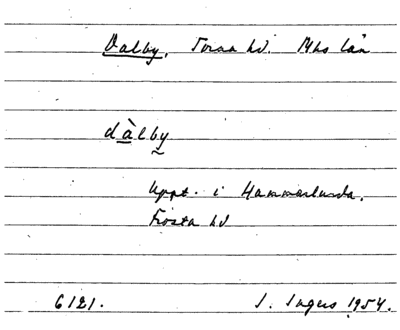 Dalby, Torna hd. Mhs län
dàlby
Uppt. i Hammarlunda,
Frosta hd
6121. I. Ingers 1954.